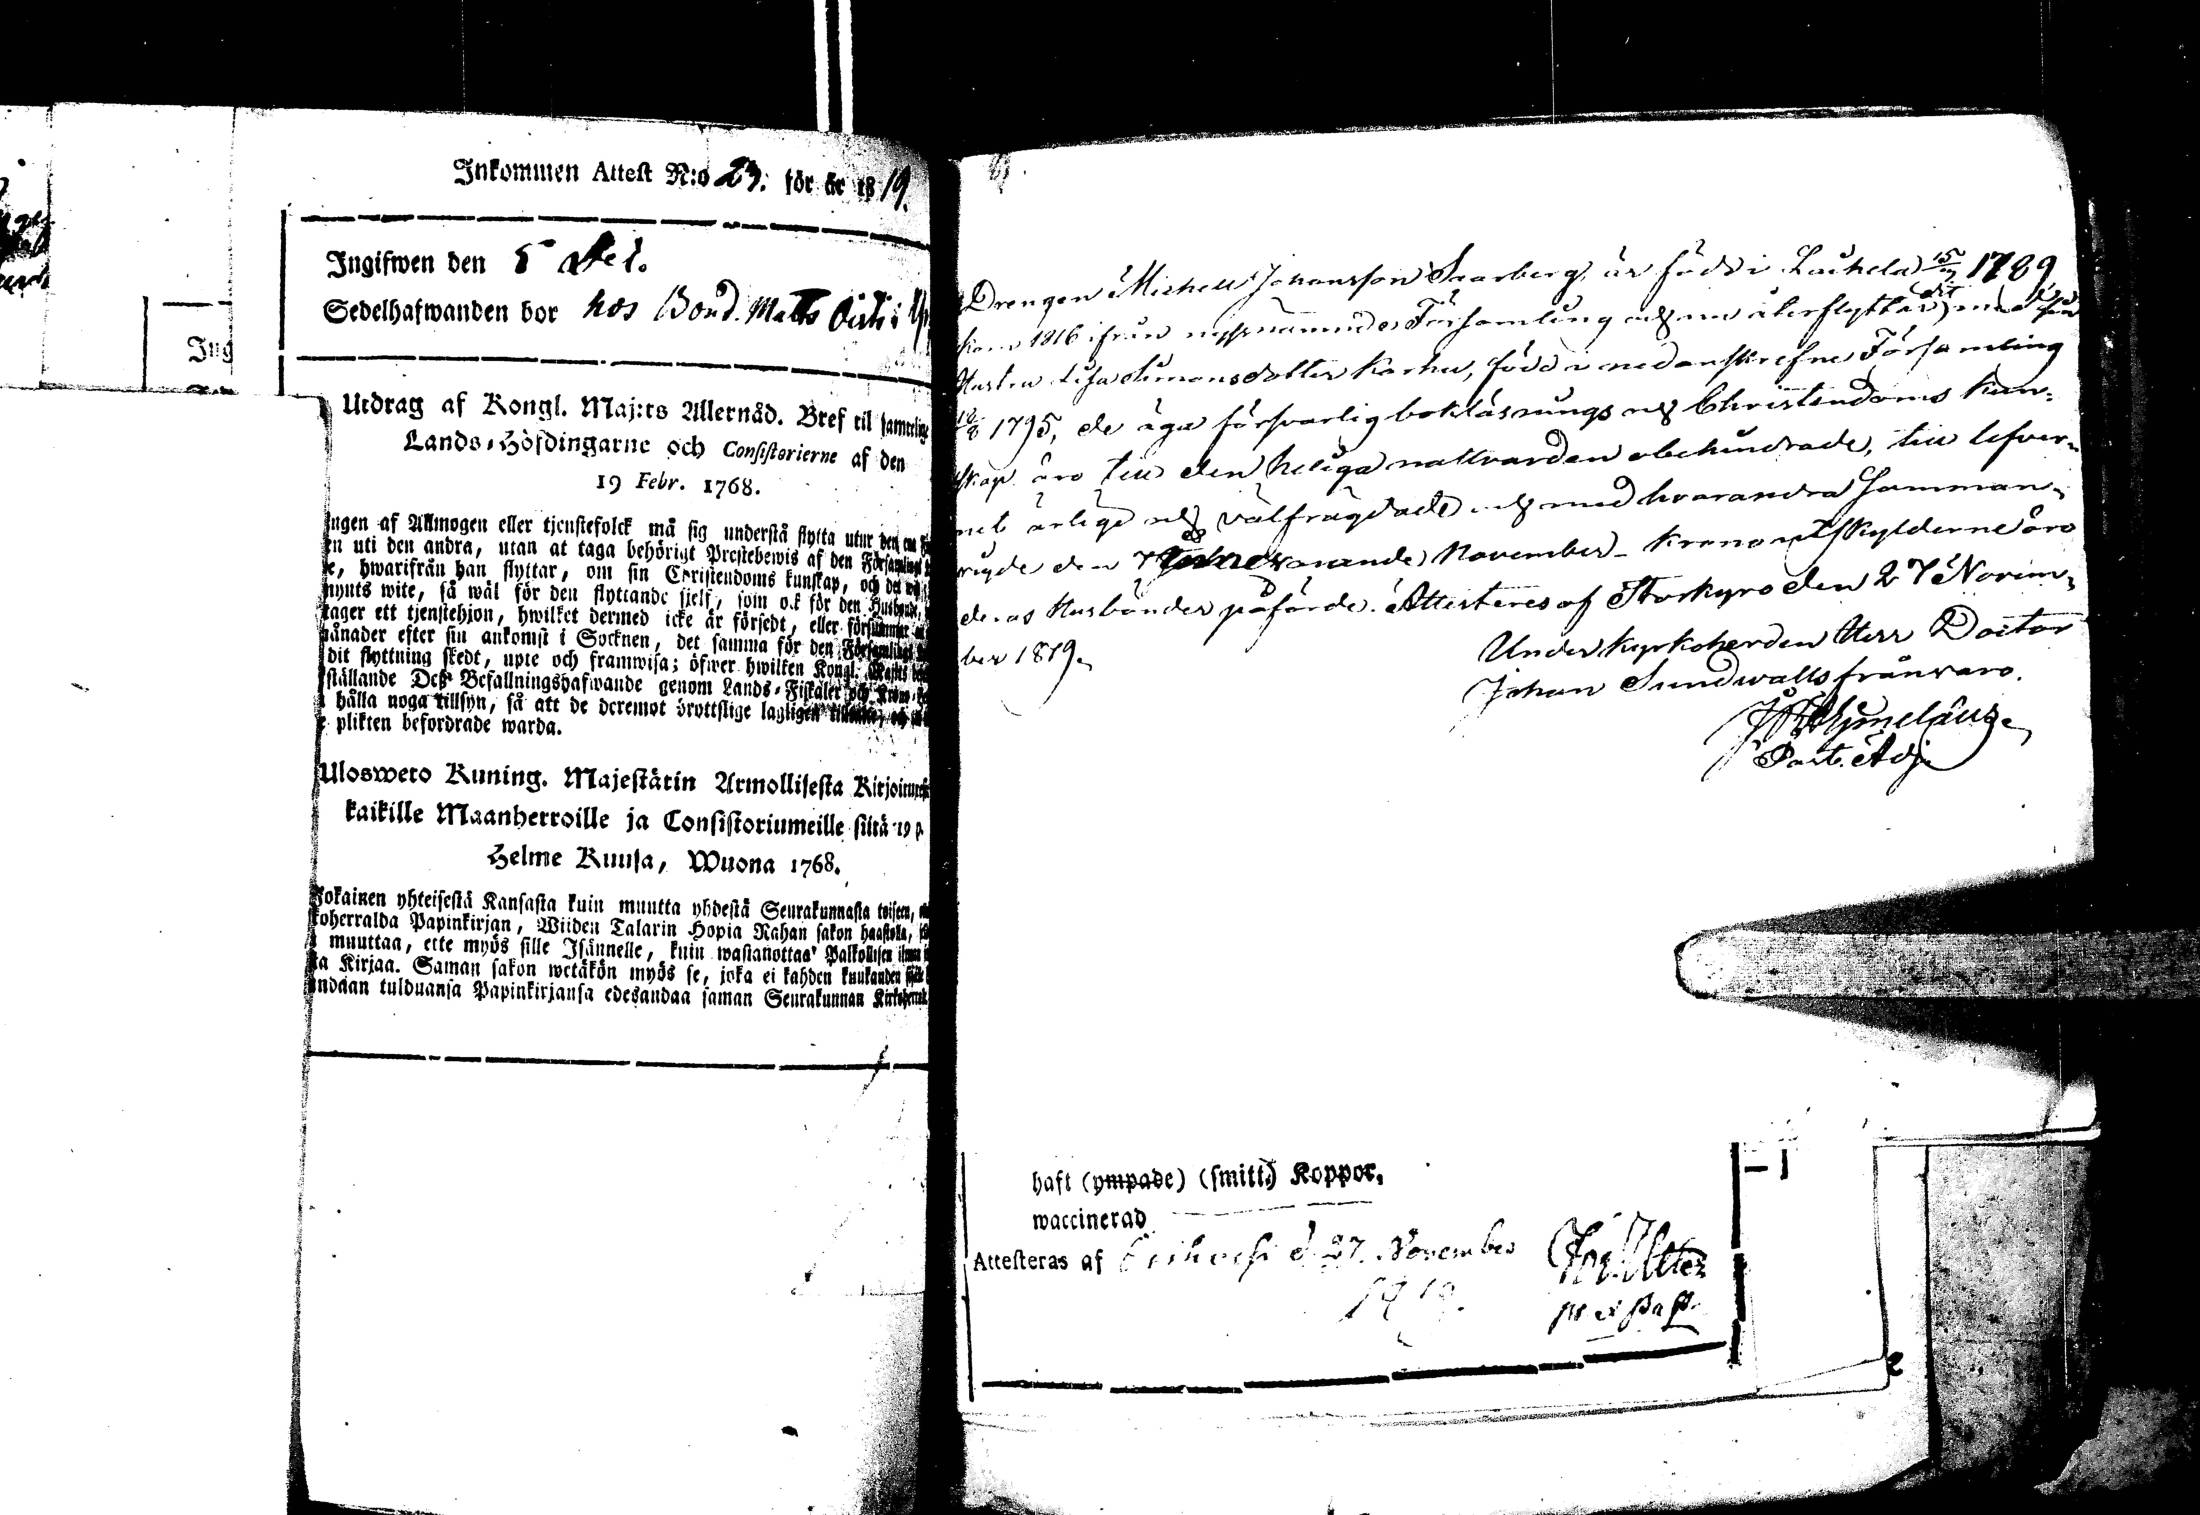 Inkommen Attest N:o 23. för år 1819.
Ingifwen den 5
Sedelhafwanden bor hos Bond. Matts
Ing
Utdrag af Kongl. Maj:ts Allernåd. Bref til samtelige
Lands-Höfdingarne och Consistorierne af den
19 Febr. 1768.
ngen af Allmogen eller tjenstefolck må sig understå flytta utur den ena
en uti den andra, utan at taga behörigt Prestebewis af den Församlings
e, hwarifrån han flyttar, om sin Christendoms kunskap, och det wid
mynts wite, så wäl för den flyttande sjelf, som ock för den Husbonde,
tager ett tjenstehjon, hwilket dermed icke är försedt, eller försummar
månader efter sin ankomst i Socknen, det samma för den Församlings
dit flyttning skedt, upte och framwisa; öfwer hwilken Kongl. Maj:ts
ställande Deß Befallningshafwande genom Lands-Fiskaler och
hålla noga tillsyn, så att de deremot brottslige lagligen
plikten befordrade warda.
Ulosweto Kuning. Majestätin Armollisesta Kirjoituxesta
kaikille Maanherroille ja Consistoriumeille siltä 19 p.
Helme Kuusa, Wuona 1768.
Jokainen yhteisestä Kansasta kuin muutta yhdestä Seurakunnasta toiseen,
koherralda Papinkirjan, Wiiden Talarin Hopia Rahan sakon haastolla,
muuttaa, ette myös sille Isännelle, kuin wastanottaa Palkollisen ilman
ta Kirjaa. Saman sakon wetäkön myös se, joka ei kahden kuukauden
undaan tulduansa Papinkirjansa edesandaa saman Seurakunnan Kirkoherralle
Drengen Michell Johansson Saarberg, är född i Laihela 15/7 1789,
kom 1816 ifrån nyssnämnde Församling och nu återflyttar dit med sin
Hustru Lisa Simonsdotter Karhu, född i nedanskrefne Församling
18/8 1795, de äga försvarlig bokläsnings och Christendoms kun-
skap äro till den heliga nattvarden obehindrade, till lefver-
net ärlige och välfrägdade och med hvarandra samman-
vigde den 7 November. Krono utskylderne äro
deras Husbönder påförde. Attesteres af Storkyro den 27 Novem-
ber 1819.
Under kyrkoherden Herr Doctor
Johan Sundwalls frånvaro.
Past. Adj.
haft (ympade) (smitt.) Koppor.
waccinerad
Attesteras af d. 27. November
1819.